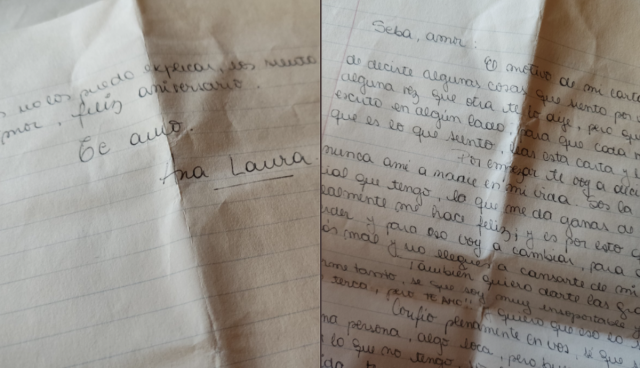 s no los puedo explicar, los siento
mor, feliz aniversario.
Te amo.
Ana Laura.
Seba, amor:
El motivo de mi carta
de decirte algunas cosas que siento por
alguna vez que otra te lo dije, pero
escrito en algún lado, para que cada
que es lo que siento, leas esta carta y
Por empezar te voy a deci
nunca amé a nadie en mi vida. Sos la
ial que tengo, lo que me da ganas de
ealmente me hace feliz, y es por esto q
rder y para eso voy a cambiar, para
ás mal y no llegues a cansarte de mi
También quiero darte las gra
rme tanto, se que soy muy insoportable
terca, pero TE AMO!! quiero que eso lo
Confío plenamente en vos, se que
na persona, algo loca, pero
lo que no tengo